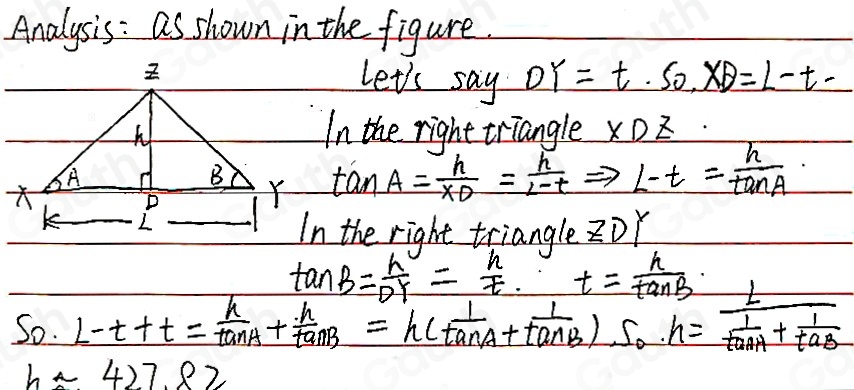 Analysis: as shown in the figure.
Z
Let's say DY = t. So, XD = L-t.
h
In the right triangle XDZ.
A B
X D Y
tan A = h/XD = h/L-t ⇒ L-t = h/tanA
L
In the right triangle ZDY
tan B = h/DY = h/t. t = h/tanB.
So. L-t+t = h/tanA + h/tanB = h(1/tanA + 1/tanB). So. h = L/(1/tanA + 1/taB)
h ≈ 427.82